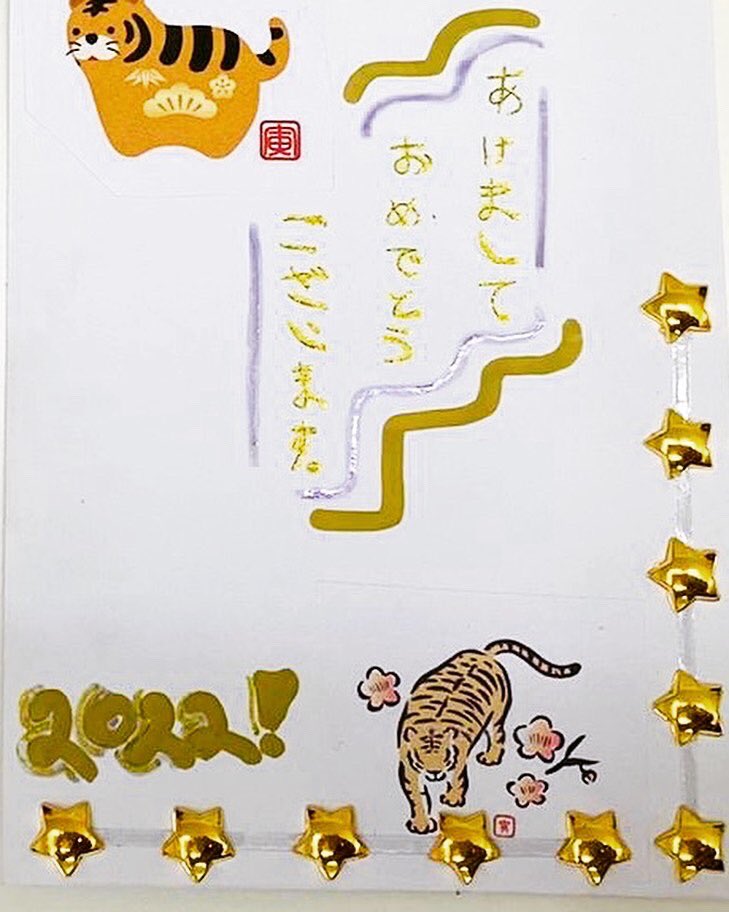 あけまして
おめでとう
ございます。
寅
2022!
寅